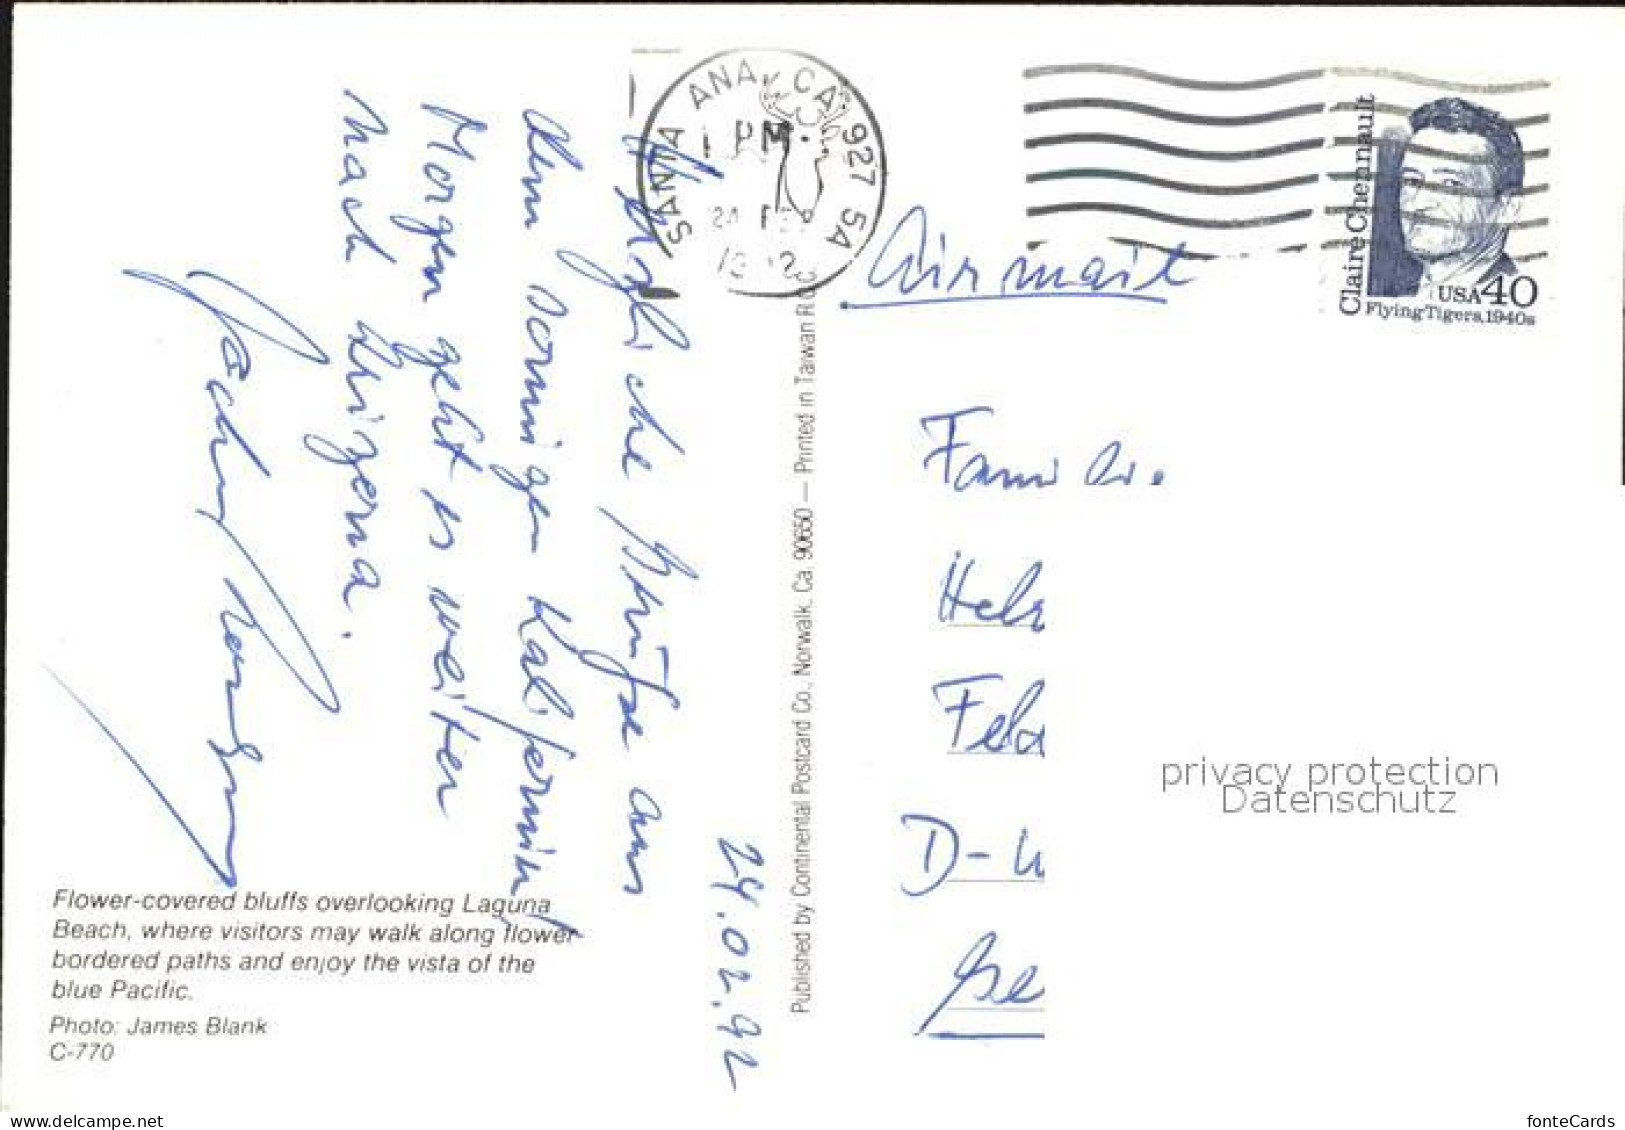 24.02.92
Herzliche Grüße aus
dem sonnigen Kalifornien!
Morgen geht es weiter
nach Arizona.
Flower-covered bluffs overlooking Laguna
Beach, where visitors may walk along flower
bordered paths and enjoy the vista of the
blue Pacific.
Photo: James Blank
C-770
Published by Continental Postcard Co., Norwalk, Ca. 90650 — Printed in Tawan R.O.
SANTA ANA, CA 927 5A
1 PM
24 FEB
Claire Chennault
USA 40
Flying Tigers, 1940s
Airmail
Familie
Fela
D-
privacy protection
Datenschutz
Delcampe.net
fonteCards